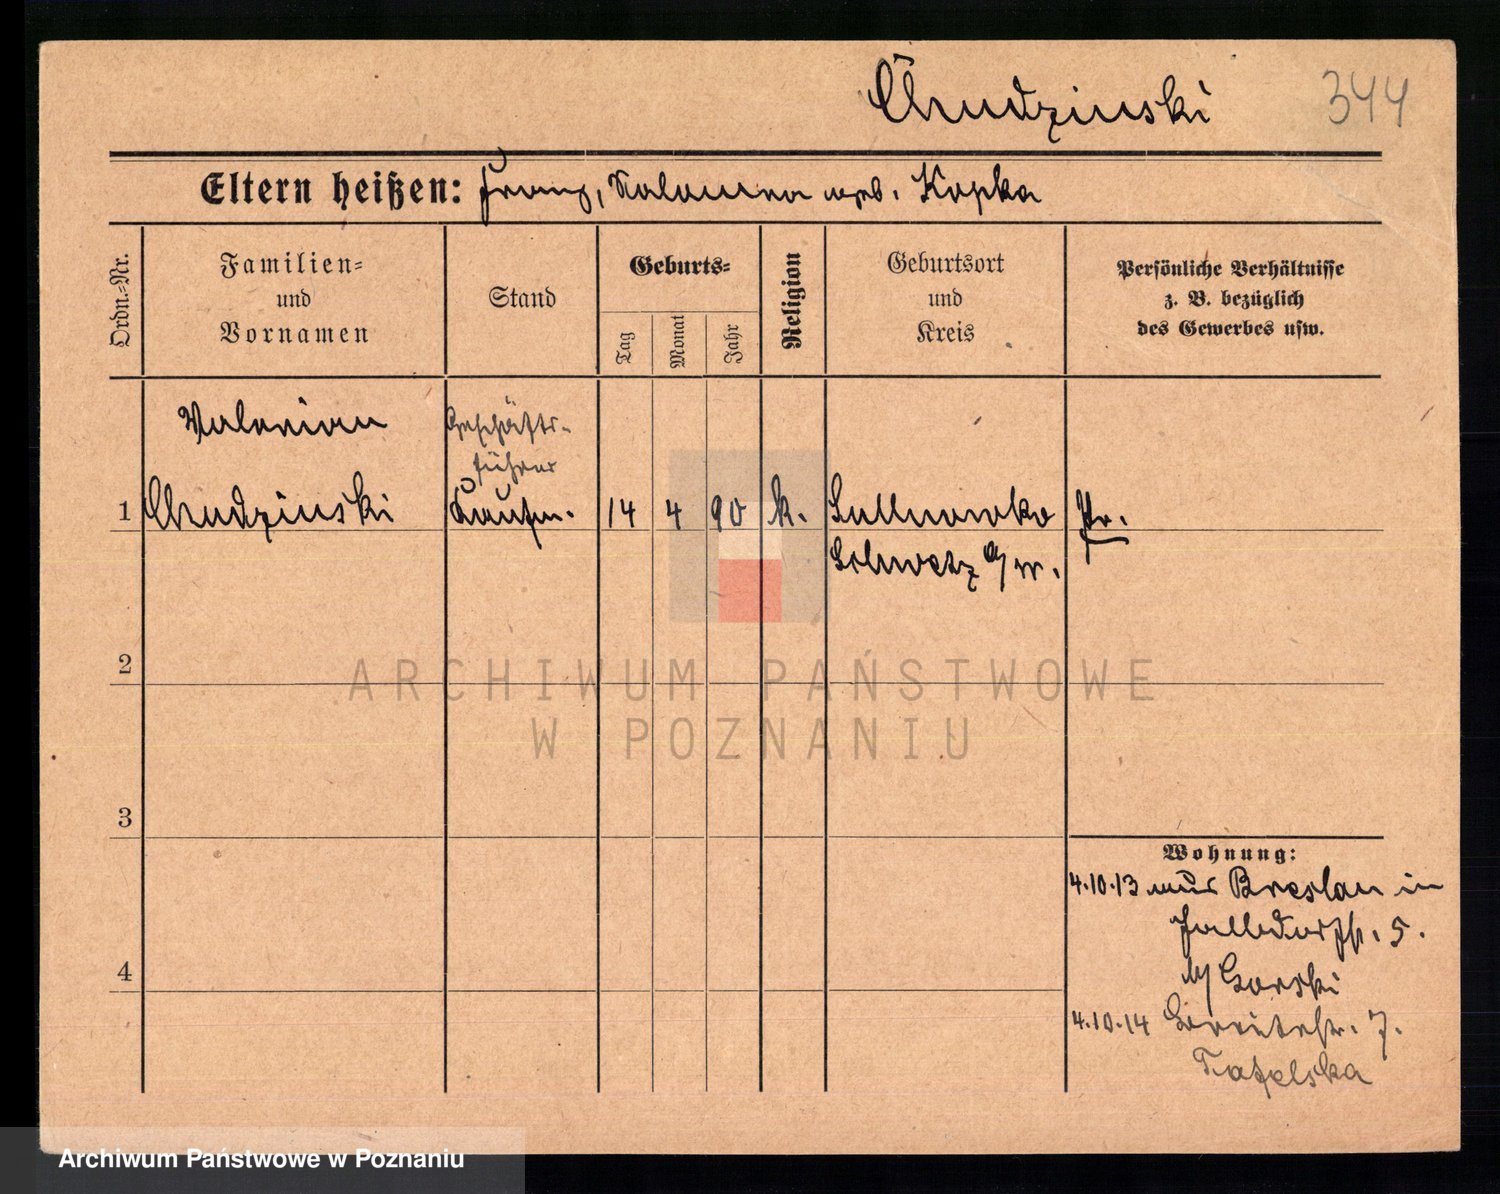 Chudzinski 344
Eltern heißen: Franz, Salomea geb. Kopka
Ordn.-Nr.
Familien-
und
Vornamen
Stand
Geburts-
Tag
Monat
Jahr
Religion
Geburtsort
und
Kreis
Persönliche Verhältnisse
z. B. bezüglich
des Gewerbes usw.
Valerian
Geschäfts-
führer
1 Chudzinski Kaufm. 14 4 90 k. Sullnowko Pr.
Schwetz a/W.
2
ARCHIWUM PAŃSTWOWE
W POZNANIU
3
Wohnung:
4.10.13 aus Breslau in
5.
4 b/ Gorski
4.10.14 Breitestr. 7.
Tafelska
Archiwum Państwowe w Poznaniu